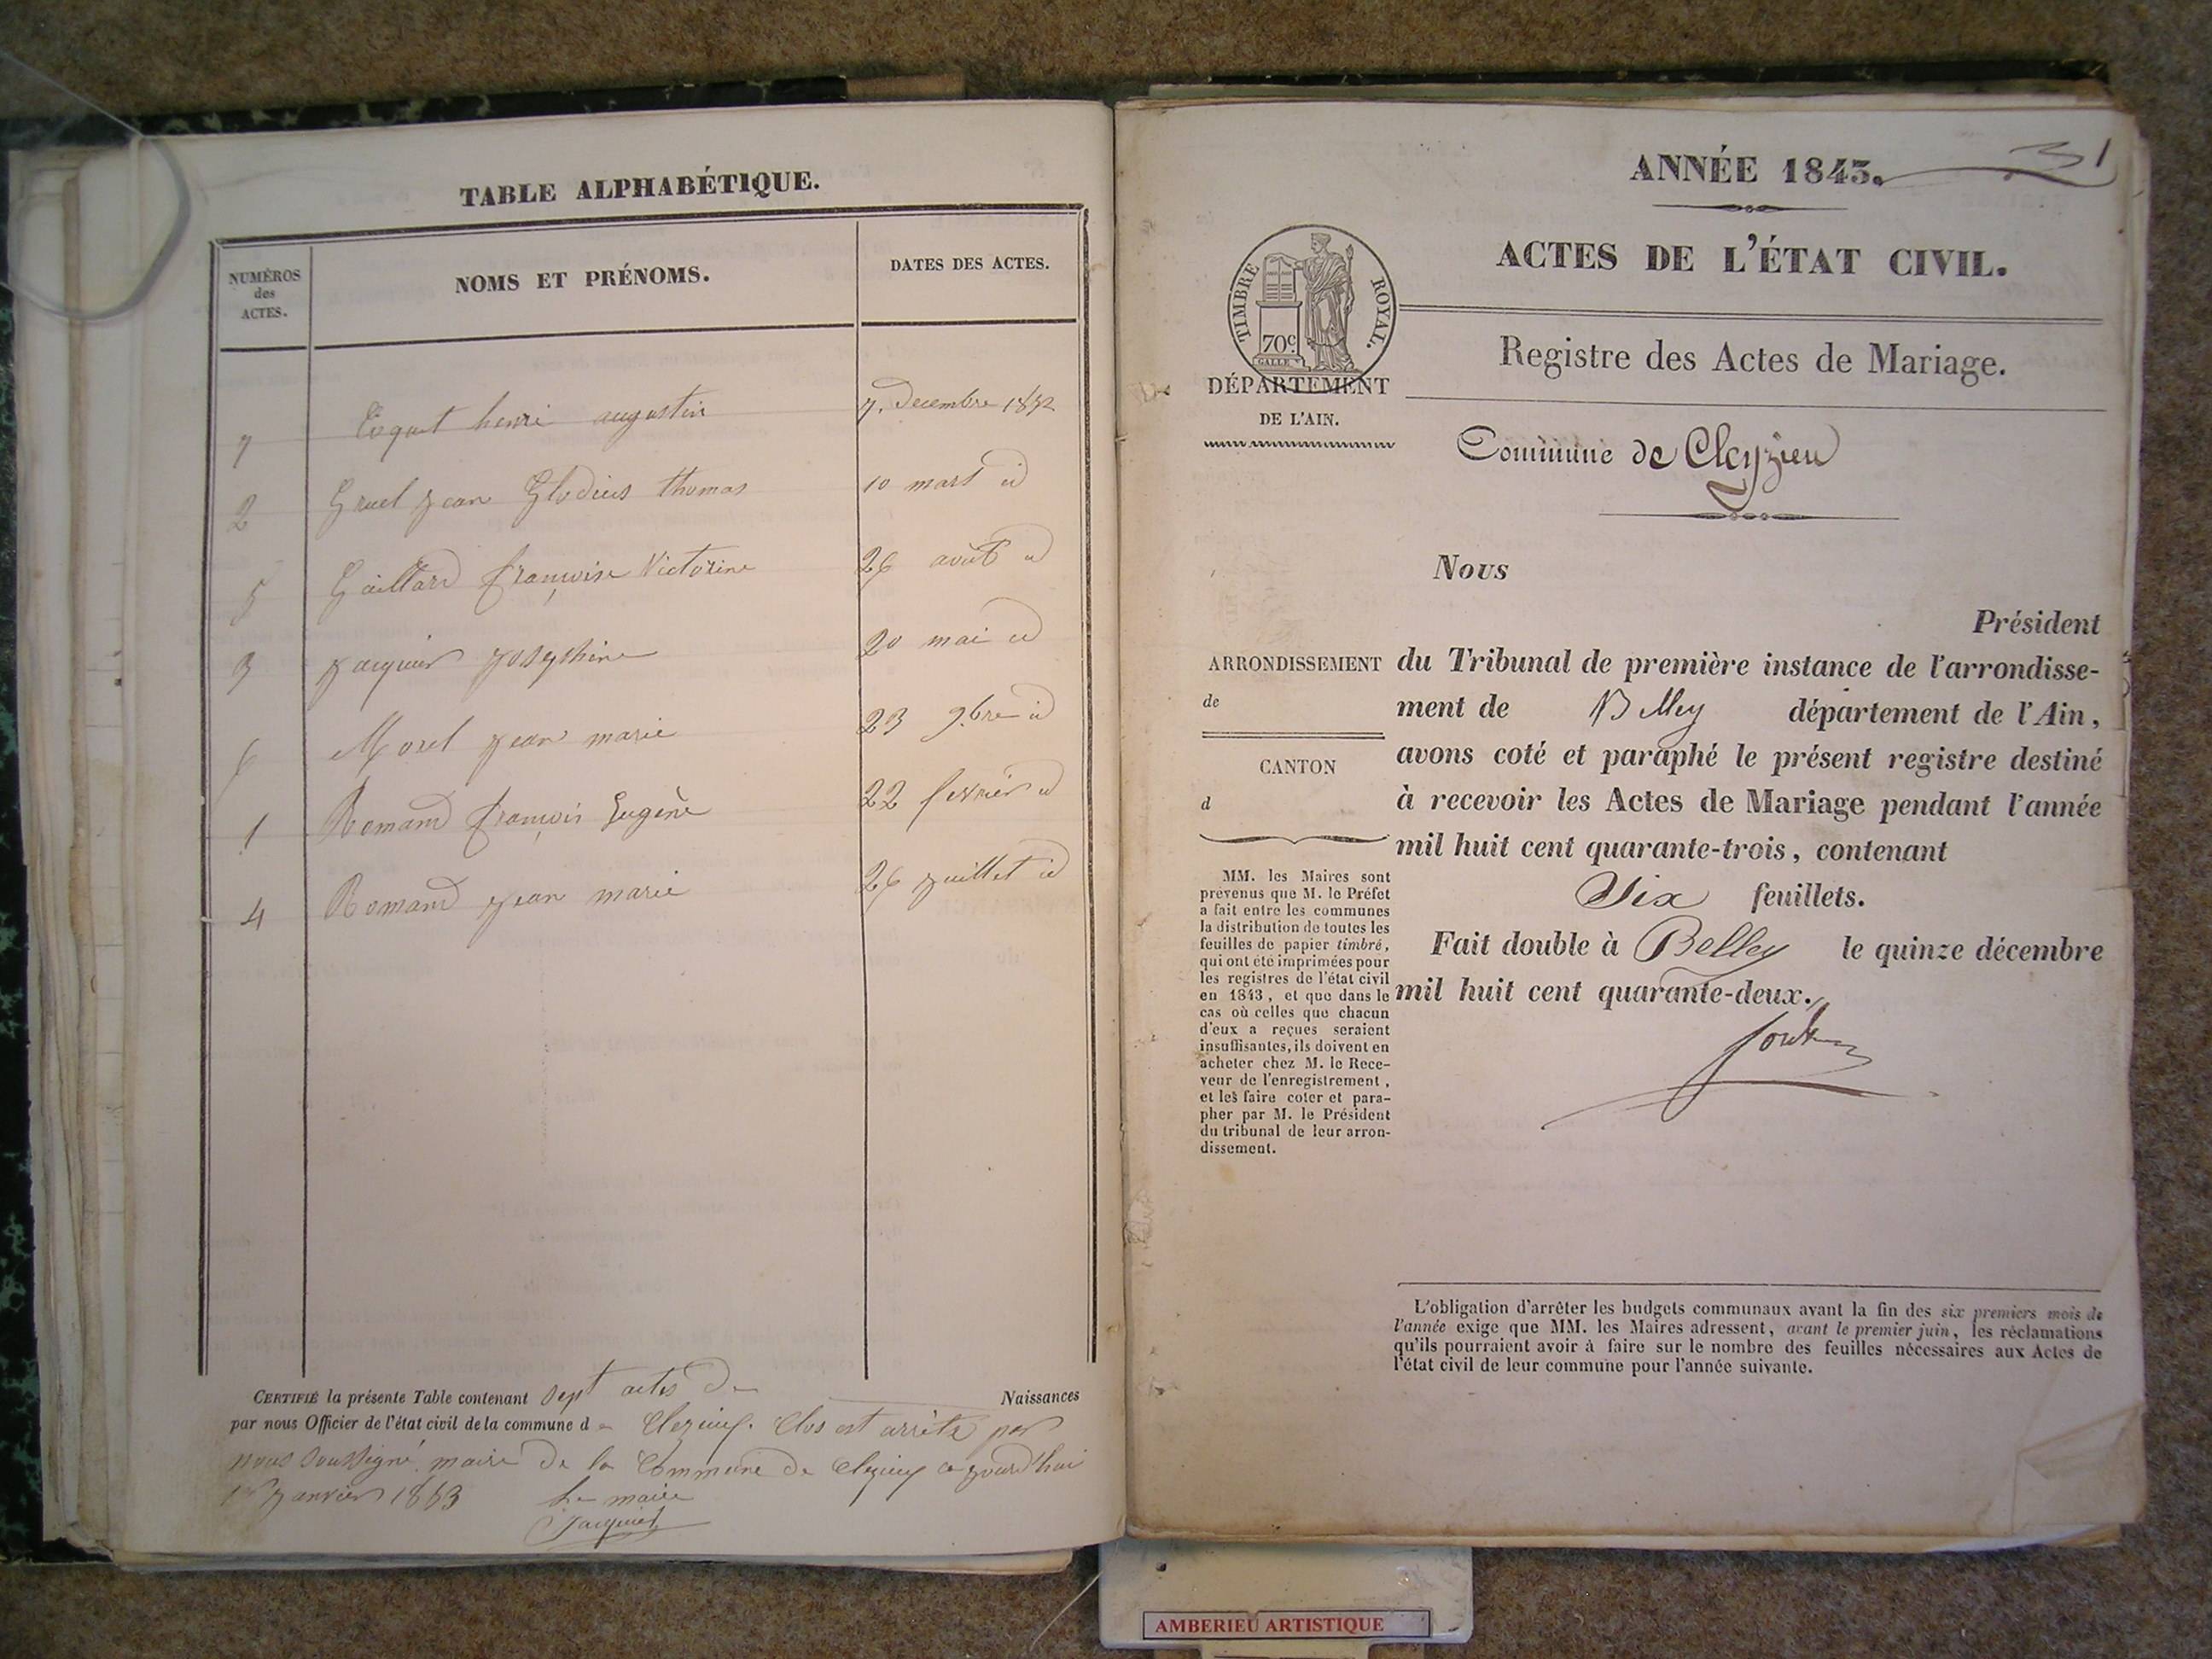 TABLE ALPHABÉTIQUE.
NUMÉROS
des
ACTES.
NOMS ET PRÉNOMS.
DATES DES ACTES.
7 henri augustin 7. Decembre 1852
2 Gruel jean Glodius thomas 10 mars id
5 Gaillard françoise Victorine 26 août id
3 jacquier josephine 20 mai id
6 Morel jean marie 23 9.bre id
1 Romand françois Eugène 22 fevrier id
4 Romand jean marie 26 juillet id
CERTIFIÉ la présente Table contenant sept actes de Naissances
par nous Officier de l'état civil de la commune de Cleyzieu. Clos est arrêté par
nous soussigné maire de la Commune de Cleyzieu ce jourd'hui
1er janvier 1853 Le maire
Jacquier
31
ANNÉE 1843.
ACTES DE L'ÉTAT CIVIL.
TIMBRE ROYAL.
70c.
GALLE
DÉPARTEMENT
DE L'AIN.
Registre des Actes de Mariage.
Commune de Cleyzieu
Nous
Président
ARRONDISSEMENT
de
CANTON
d
du Tribunal de première instance de l'arrondisse-
ment de Belley département de l'Ain,
avons coté et paraphé le présent registre destiné
à recevoir les Actes de Mariage pendant l'année
mil huit cent quarante-trois, contenant
Six feuillets.
Fait double à Belley le quinze décembre
mil huit cent quarante-deux.
MM. les Maires sont
prévenus que M. le Préfet
a fait entre les communes
la distribution de toutes les
feuilles de papier timbré,
qui ont été imprimées pour
les registres de l'état civil
en 1843, et que dans le
cas où celles que chacun
d'eux a reçues seraient
insuffisantes, ils doivent en
acheter chez M. le Rece-
veur de l'enregistrement,
et les faire coter et para-
pher par M. le Président
du tribunal de leur arron-
dissement.
L'obligation d'arrêter les budgets communaux avant la fin des six premiers mois de
l'année exige que MM. les Maires adressent, avant le premier juin, les réclamations
qu'ils pourraient avoir à faire sur le nombre des feuilles nécessaires aux Actes de
l'état civil de leur commune pour l'année suivante.
AMBERIEU ARTISTIQUE